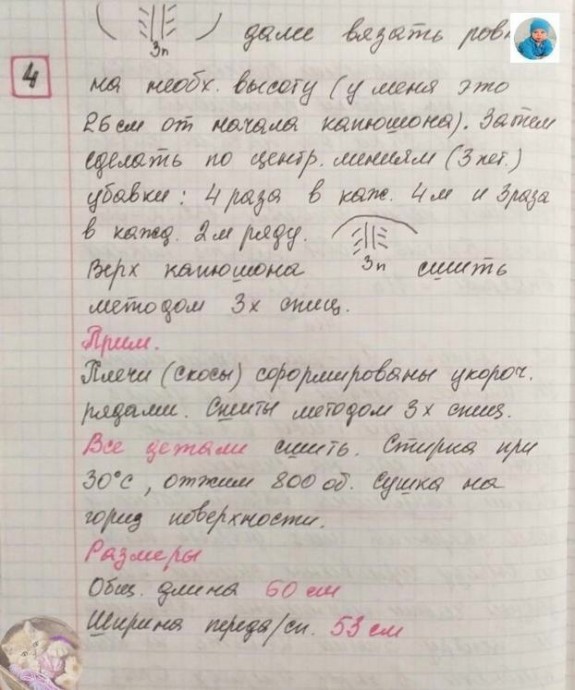 3п далее вязать
4
на необх. высоту (у меня это
26 см от начала капюшона). Затем
сделать по центр. линиям (3 пет.)
убавки: 4 раза в каж. 4м и 3 раза
в кажд. 2м ряду.
Верх капюшона 3п сшить
методом 3х спиц.
Прим.
Плечи (скосы) сформированы укороч.
рядами. Сшиты методом 3х спиц.
Все детали сшить. Стирка при
30°С, отжим 800 об. Сушка на
гориз поверхности.
Размеры
Общ. длина 60 см
Ширина переда/сп. 53 см